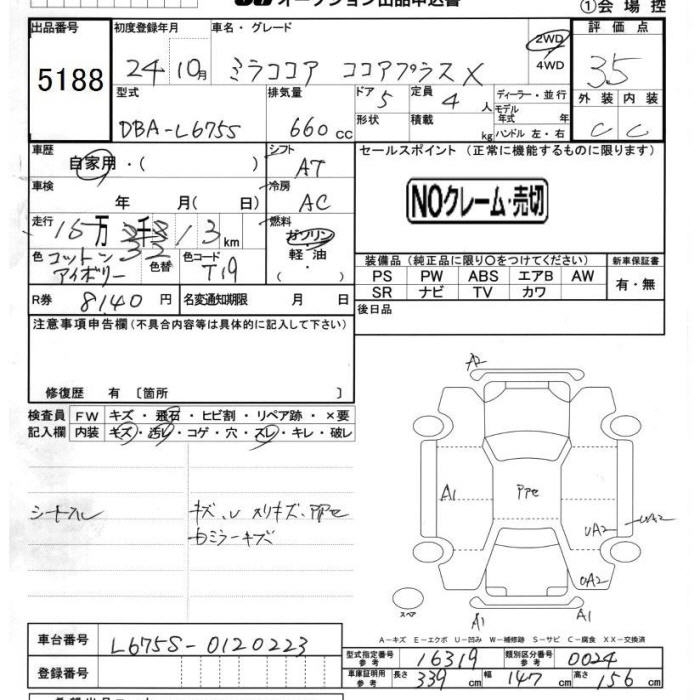 オークション出品申込書
①会場控
出品番号
5188
初度登録年月
24 10月
車名・グレード
ミラココア ココアプラスX
2WD
4WD
評価点
3.5
型式
DBA-L675S
排気量
660cc
ドア
5
形状
定員
4人
積載
kg
ディーラー・並行
モデル年式 年
ハンドル 左・右
外装
C
内装
C
車歴
自家用・( )
シフト
AT
車検
年 月(日)
冷房
AC
走行
15万 千 13km
燃料
ガソリン
軽油
・
( )
色
コットンアイボリー
色替
色コード
T19
R券
8140円
名変通知期限
月 日
セールスポイント (正常に機能するものに限ります)
NOクレーム・売切
装備品 (純正品に限り○をつけてください)
新車保証書
PS PW ABS エアB AW
SR ナビ TV カワ
有・無
後日品
注意事項申告欄(不具合内容等は具体的に記入して下さい)
修復歴 有 〔箇所 〕
検査員記入欄
FW キズ・飛石・ヒビ割・リペア跡・×要
内装 キズ・汚レ・コゲ・穴・スレ・キレ・破レ
シートスレ
キズ、U スリキズ、PPセ
ミラーキズ
A2
A1
PPセ
UA2
UA2
UA2
スペア
A1
A1
A-キズ E-エクボ U-凹み W-補修跡 S-サビ C-腐食 XX-交換済
車台番号
L675S-0120223
登録番号
型式指定番号
参考
16319
類別区分番号
参考
0024
車庫証明用
参考
長さ
339cm
幅
147cm
高さ
156cm